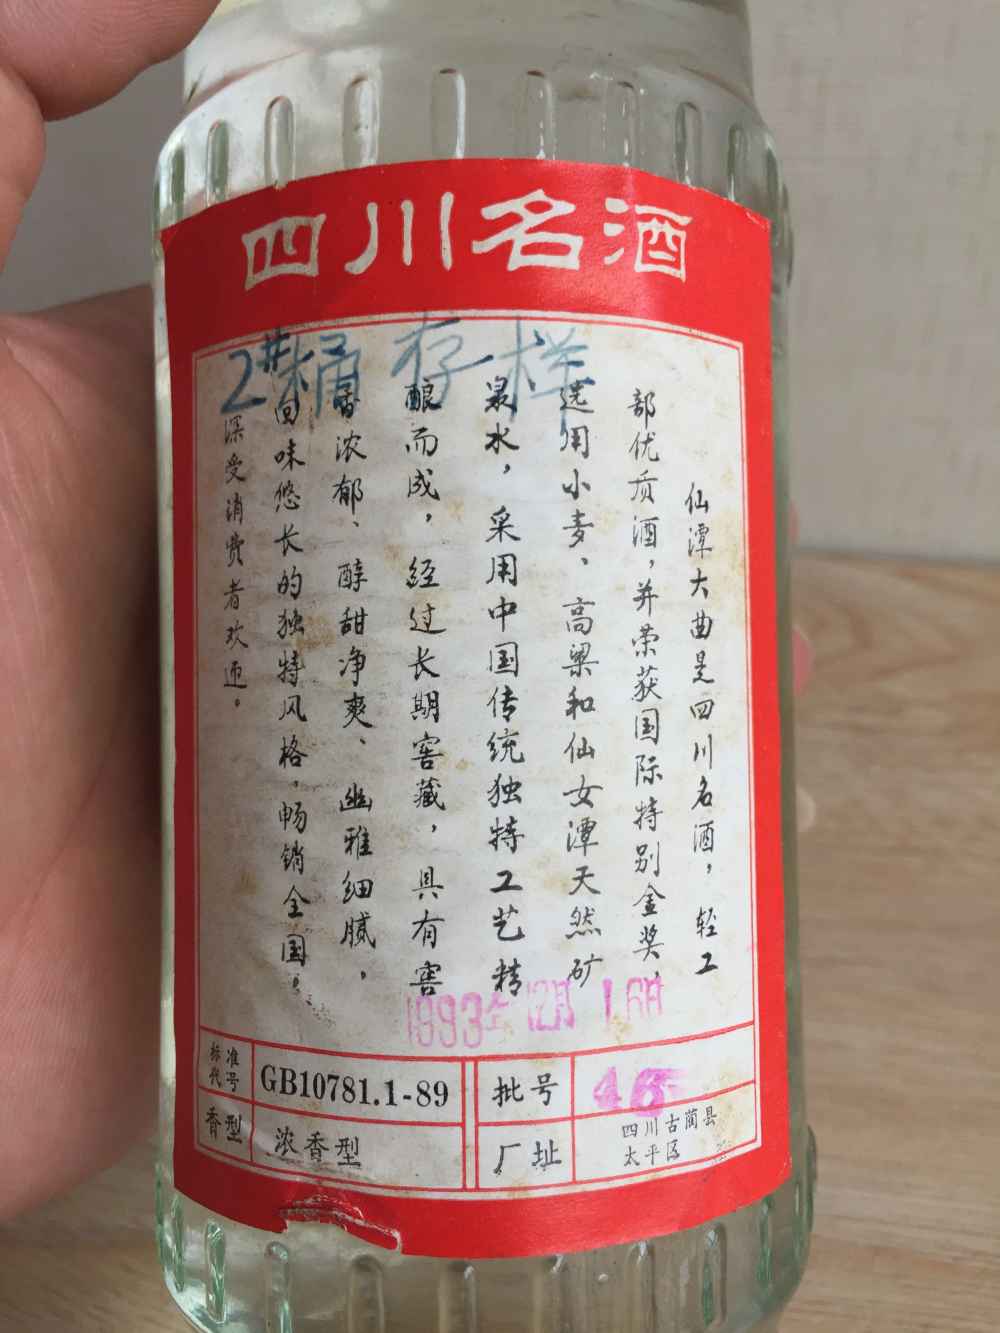 四川名酒
2#桶存样
仙潭大曲是四川名酒，轻工
部优质酒，并荣获国际特别金奖，
选用小麦、高粱和仙女潭天然矿
泉水，采用中国传统独特工艺精
酿而成，经过长期窖藏，具有窖
香浓郁、醇甜净爽、幽雅细腻，
回味悠长的独特风格，畅销全国，
深受消费者欢迎。
1993年12月16日
标准代号 GB10781.1-89
香型 浓香型
批号
厂址 四川古蔺县
太平区